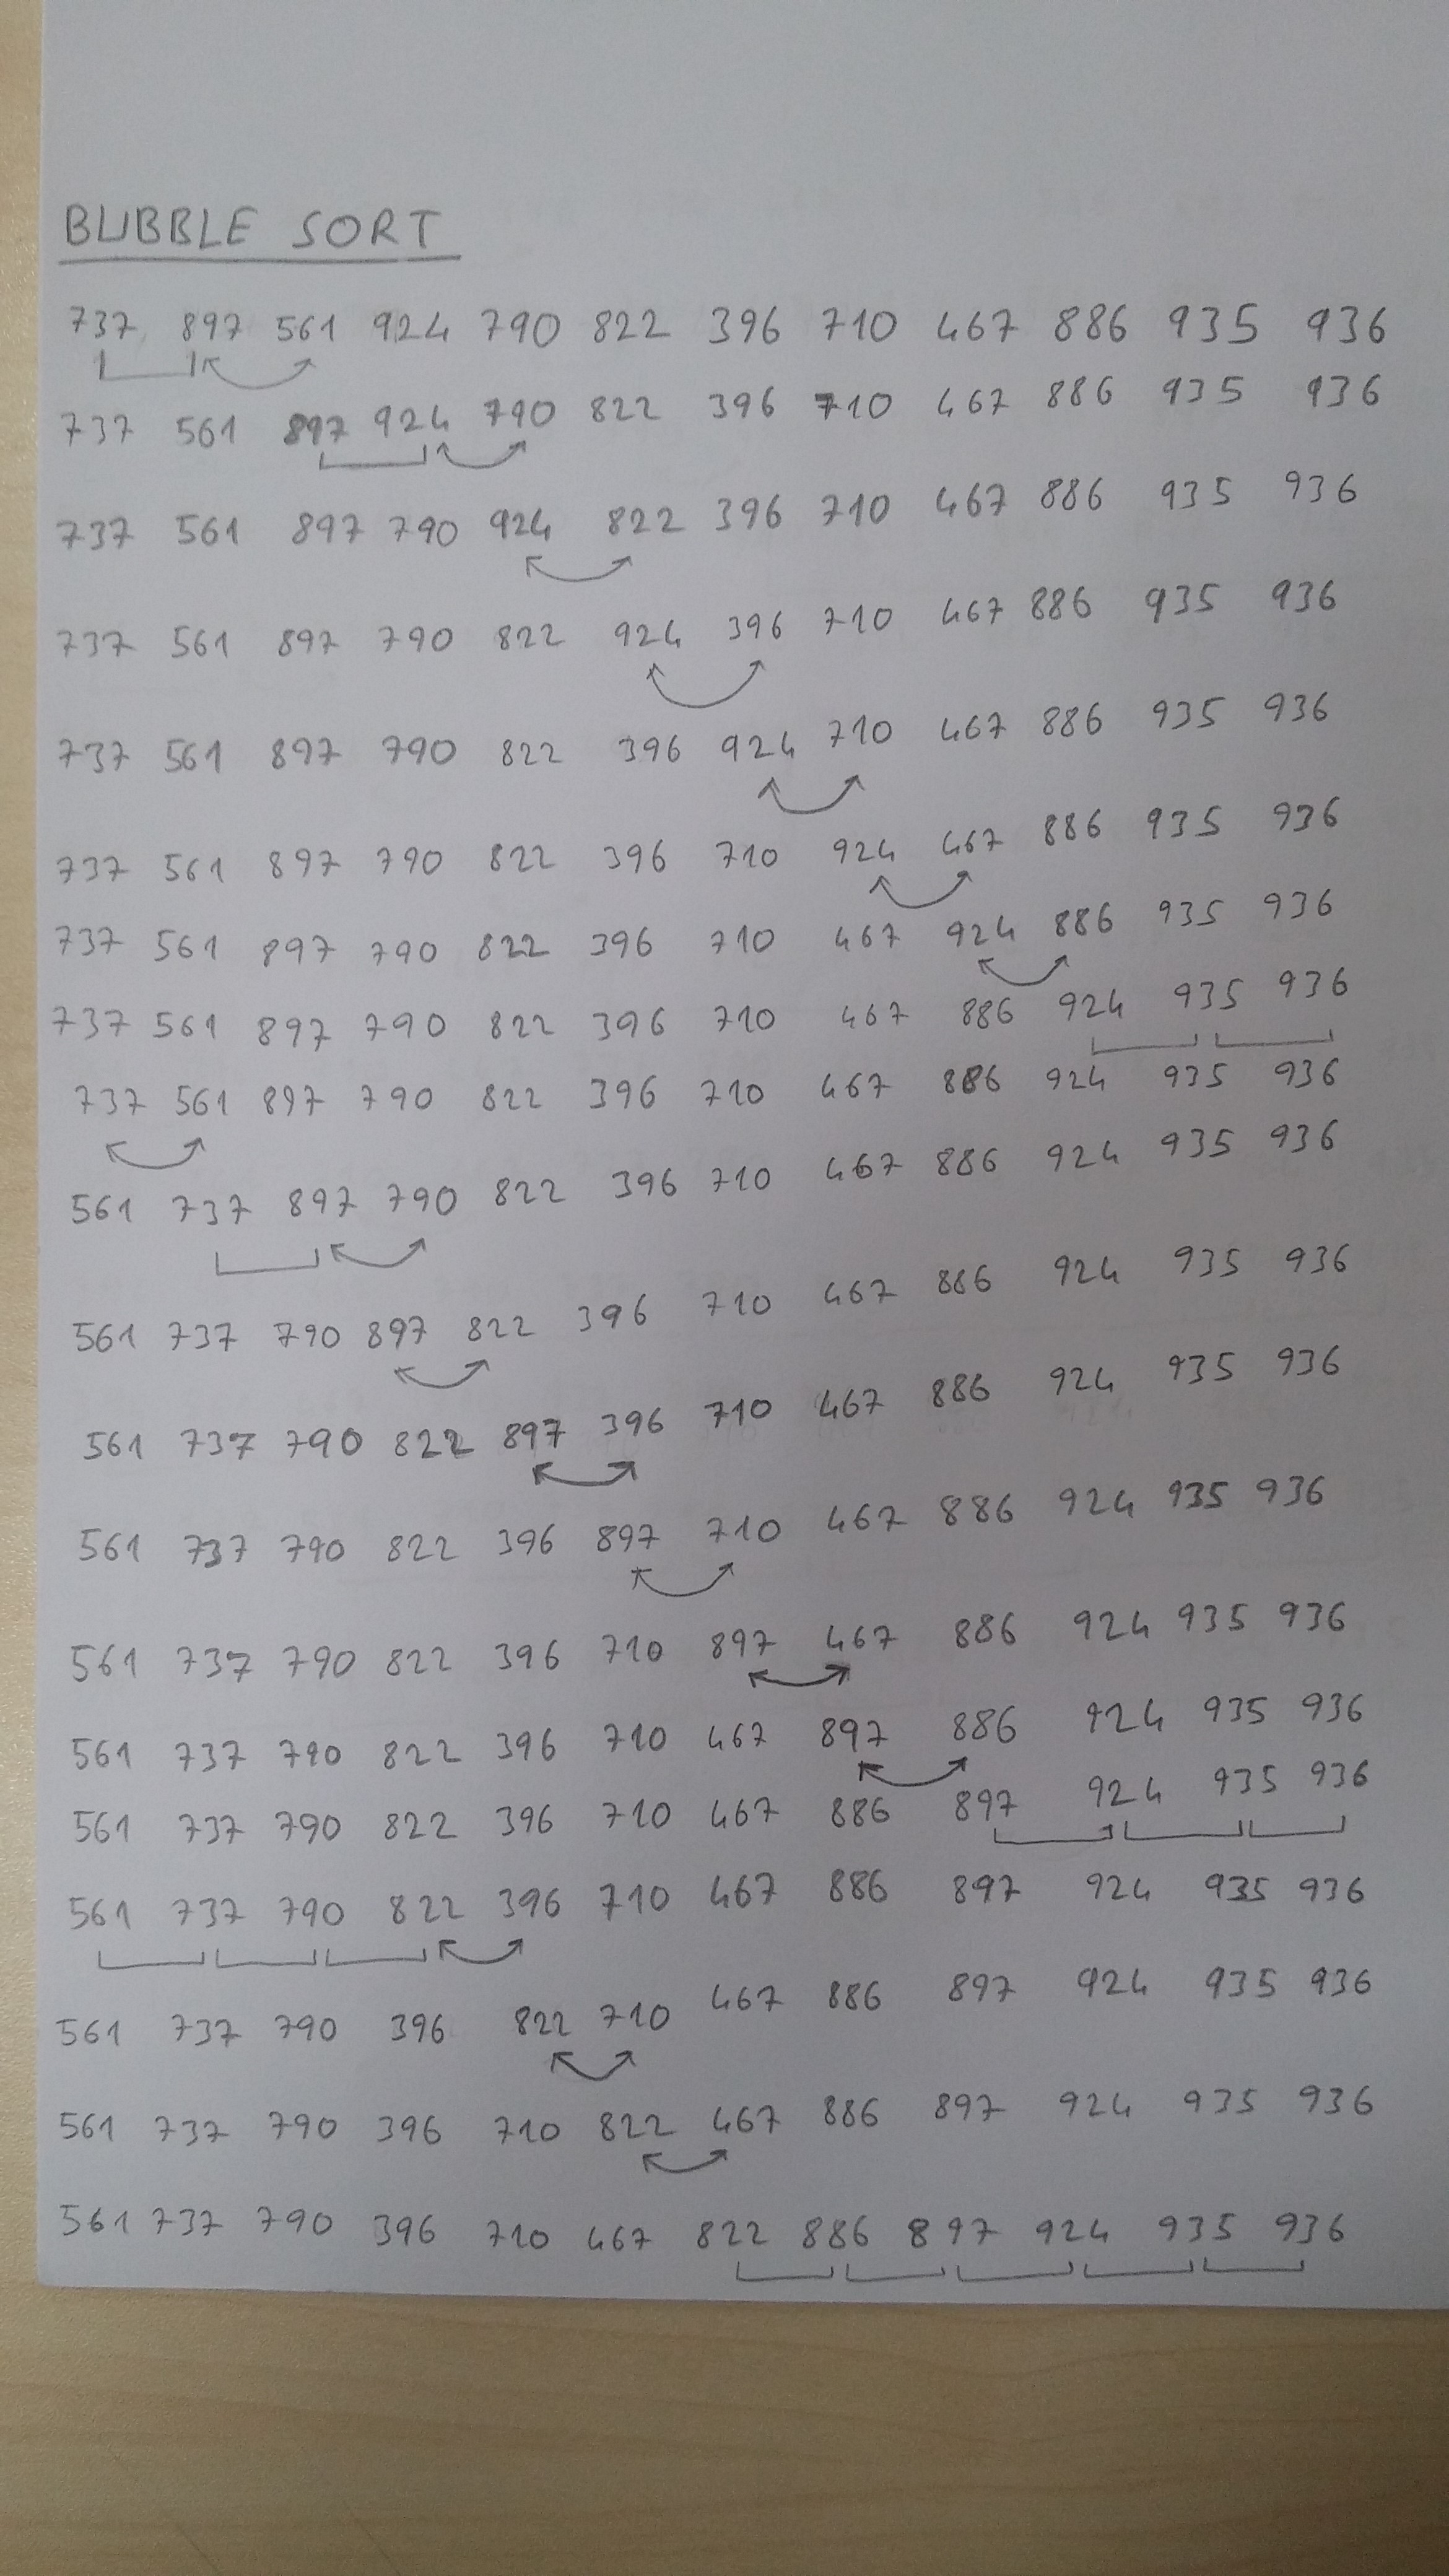 BUBBLE SORT
737 897 561 924 790 822 396 710 467 886 935 936
737 561 897 924 790 822 396 710 467 886 935 936
737 561 897 790 924 822 396 710 467 886 935 936
737 561 897 790 822 924 396 710 467 886 935 936
737 561 897 790 822 396 924 710 467 886 935 936
737 561 897 790 822 396 710 924 467 886 935 936
737 561 897 790 822 396 710 467 924 886 935 936
737 561 897 790 822 396 710 467 886 924 935 936
737 561 897 790 822 396 710 467 886 924 935 936
561 737 897 790 822 396 710 467 886 924 935 936
561 737 790 897 822 396 710 467 886 924 935 936
561 737 790 822 897 396 710 467 886 924 935 936
561 737 790 822 396 897 710 467 886 924 935 936
561 737 790 822 396 710 897 467 886 924 935 936
561 737 790 822 396 710 467 897 886 924 935 936
561 737 790 822 396 710 467 886 897 924 935 936
561 737 790 822 396 710 467 886 897 924 935 936
561 737 790 396 822 710 467 886 897 924 935 936
561 737 790 396 710 822 467 886 897 924 935 936
561 737 790 396 710 467 822 886 897 924 935 936